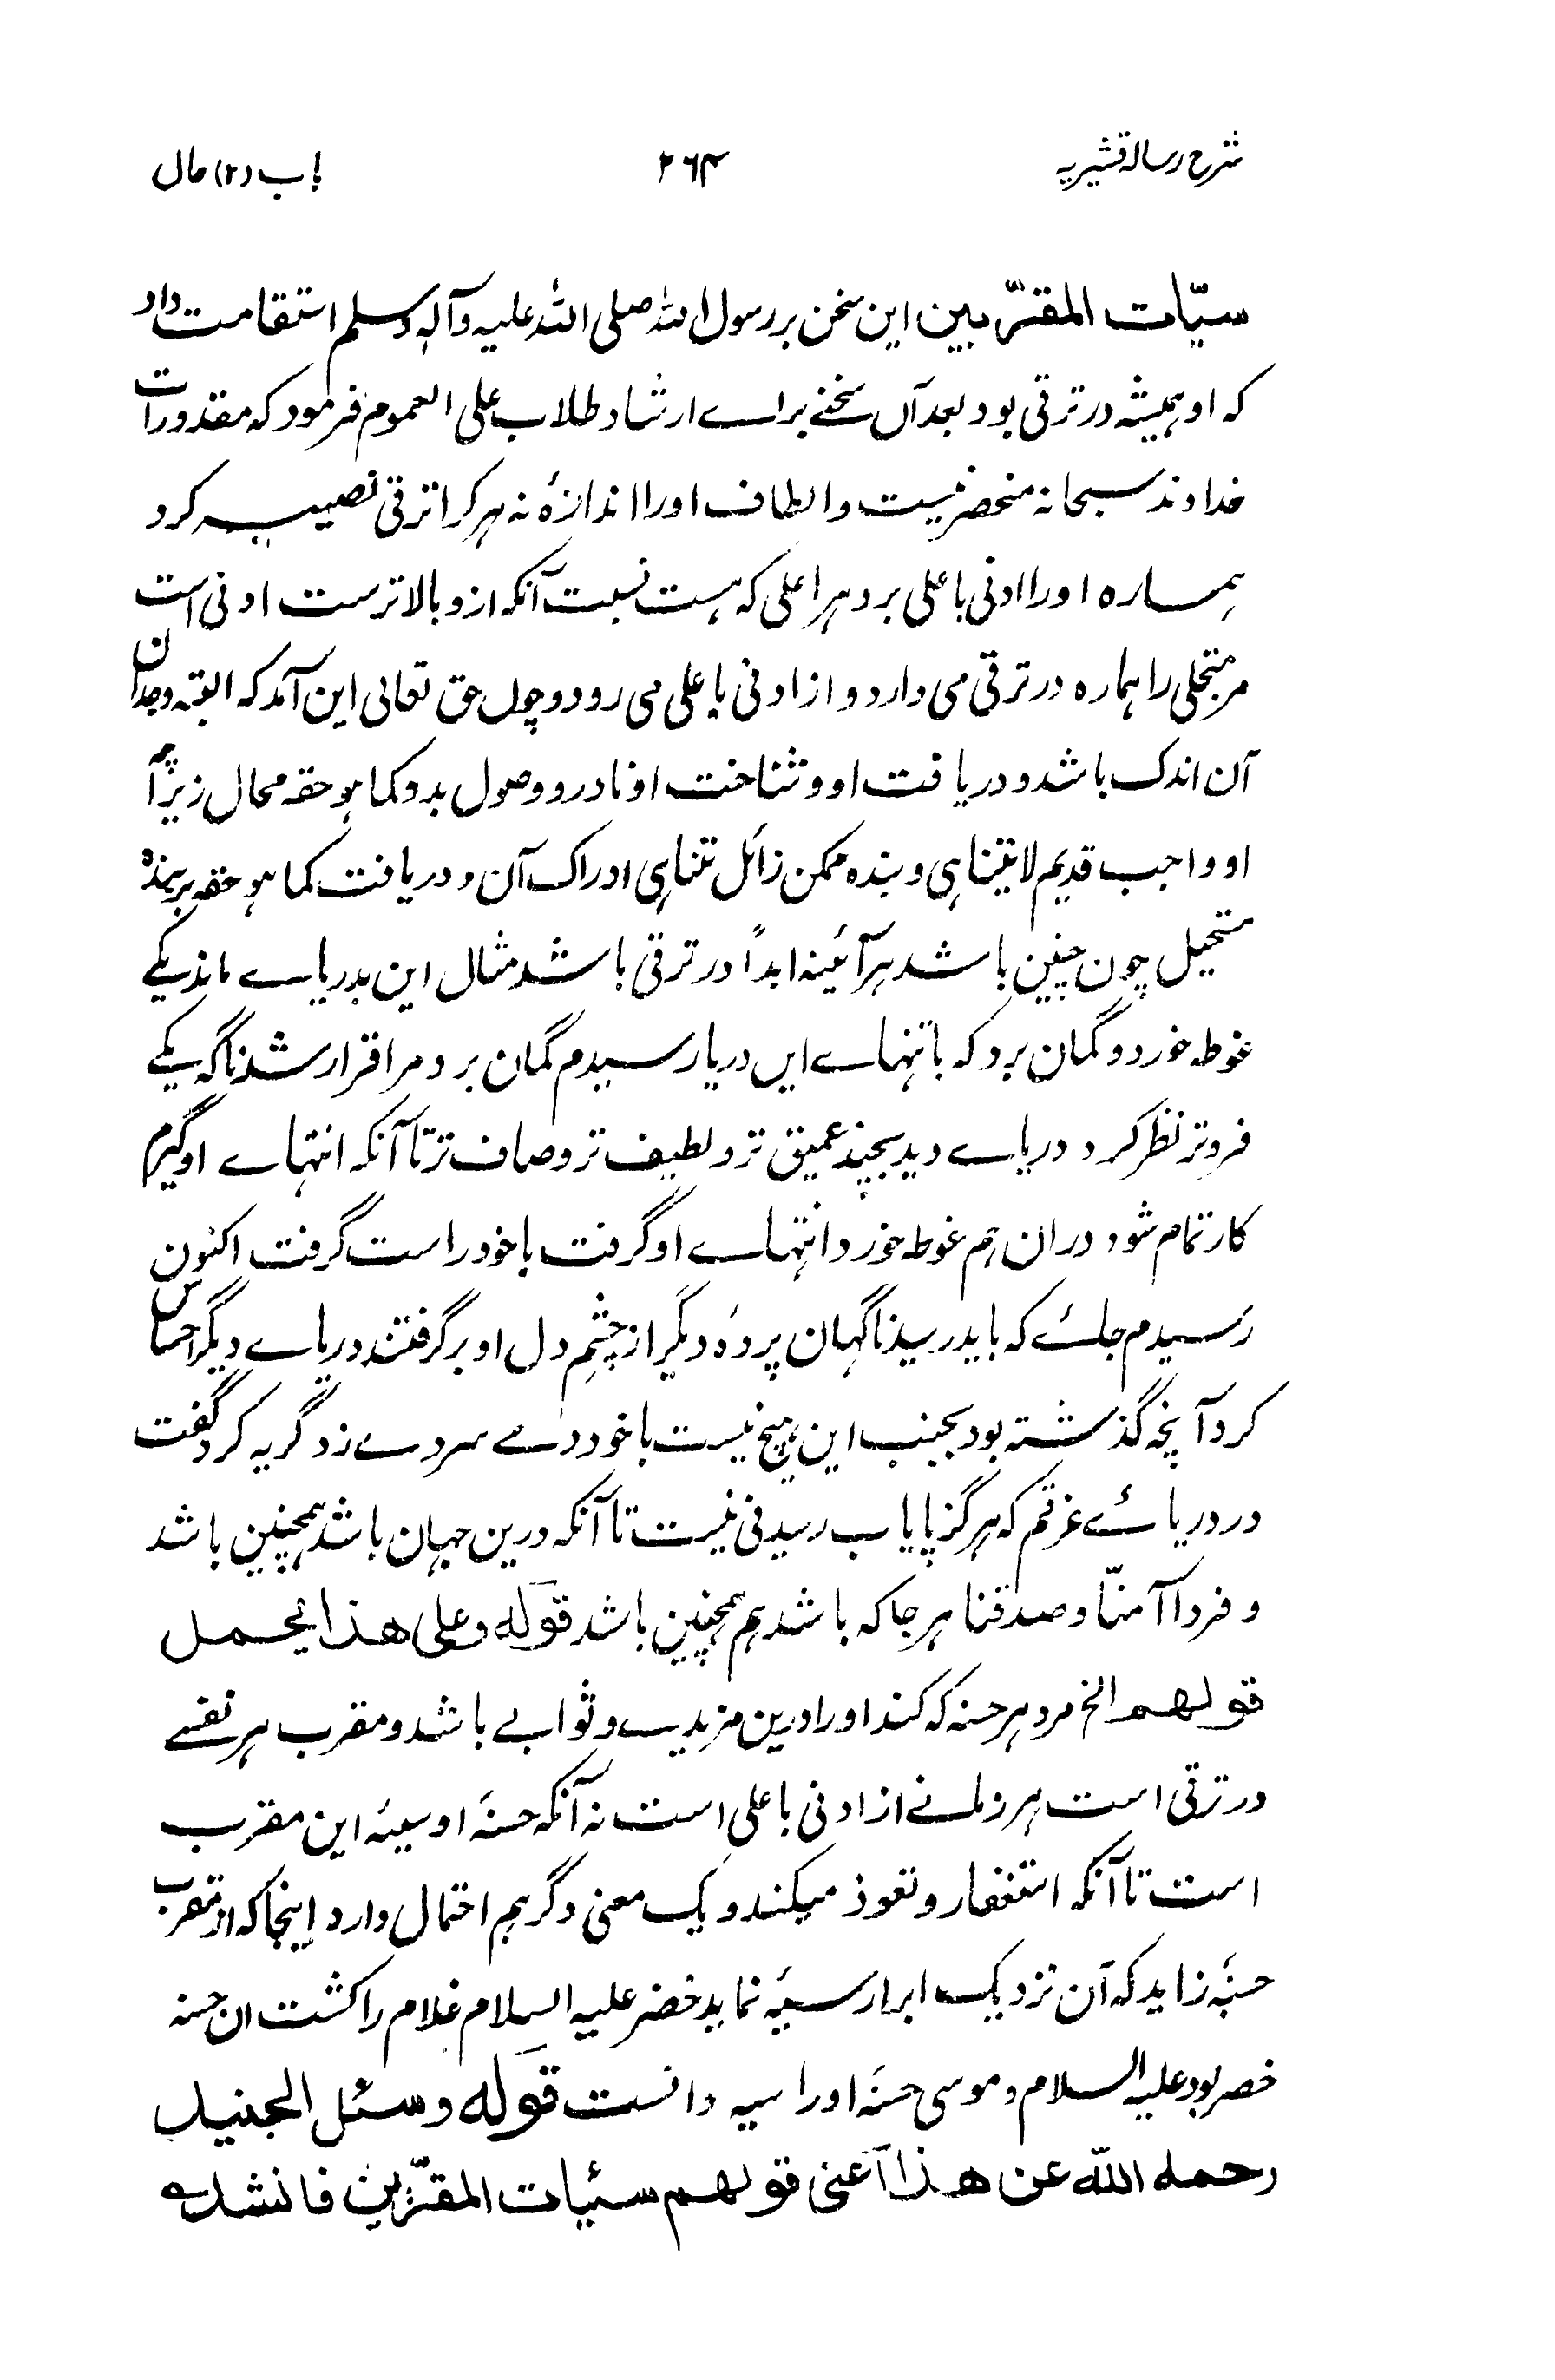 شرح رسالہ قشیریہ ۲۶۴ باب (۲) حال
سیّات المقرّبین این سخن بر رسول اللہ صلی اللہ علیہ وآلہ وسلم استقامت داد
کہ او ہمیشہ در ترقی بود بعد آں سخنے براے ارشاد طلاب علی العموم فرمود کہ مقدورات
خداوند سبحانہ منحصر نیست والطاف اورا اندازۂ نہ ہر کرا ترقی نصیب کرد
ہمسارہ اورا ادنی باعلی برد ہر اعلی کہ ہست نسبت آنکہ ازو بالا ترست ادنی است
مر متجلی را ہمارہ در ترقی می دارد و از ادنی باعلی می رود و چوں حق تعالی این آمد کہ البتہ وجدان
آن اندک باشد و دریافت او و شناخت او نادر و وصول بدو کما ہو حقہ محال زیرآچہ
او واجب قدیم لایتناہی و بندہ ممکن زائل تناہی ادراک آن و دریافت کما ہو حقہ بربندہ
مستحیل چون چنین باشد ہر آئینہ ابداً در ترقی باشد مثال این بدریاے ماند یکے
غوطہ خورد و گمان برد کہ بانتہاے ایں دریا رسیدم گمان برد مرا قرار شد ناگہ یکے
فروتر نظر کرد دریاے دید بچند عمیق تر و لطیف تر و صاف تر تا آنکہ انتہاے او گیرم
کار تمام شود دران ہم غوطہ خورد انتہاے او گرفت باخود راست گرفت اکنون
رسیدم جائے کہ باید رسید ناگہان پردۂ دیگر از چشم دل او برگرفتند دریاے دیگر احساس
کرد آنچہ گذشتہ بود بجنب این ہیچ نیست باخود دمے سردے زد گریہ کرد گفت
در دریائے غرقم کہ ہرگز پایاب رسیدنی نیست تا آنکہ درین جہان باشد ہمچنین باشد
و فردا آمنّا وصدقنا ہر جا کہ باشد ہم ہمچنین باشد قولہ وعلی ھذا یحمل
قولھم الخ مرد ہر حسنہ کہ کند اورا درین مزیدے و ثوابے باشد و مقرب ہر نفسے
در ترقی است ہر زمانے از ادنی باعلی است نہ آنکہ حسنۂ او سیئہ این مقرب
است تا آنکہ استغفار و تعوذ میکند و یک معنی دگر ہم احتمال دارد اینجا کہ از مقرب
حسنۂ زاید کہ آن نزدیک ابرار سیئہ نماید خضر علیہ السلام غلام را کشت ان حسنہ
خضر بود علیہ السلام و موسی حسنۂ اورا سیہ دانست قولہ وسئل الجنید
رحمہ اللہ عن ھذا اعنی قولھم سئیات المقرّبین فانشد